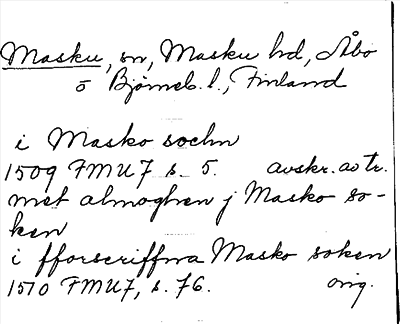 Masku, sn, Masku hd, Åbo
o Björneb. l., Finland
i Masko sochn
1509 FMU 7 s. 5. avskr. av tr.
met almoghen j Masko so-
ken
i fforscriffna Masko soken
1510 FMU 7, s. 76. orig.